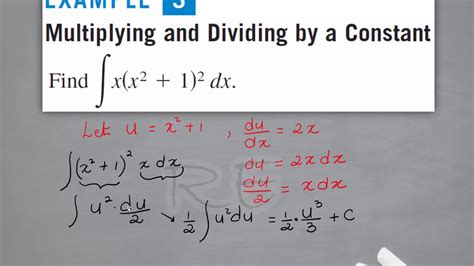 EXAMPLE 3
Multiplying and Dividing by a Constant
Find ∫x(x² + 1)² dx.
Let u = x²+1 , du/dx = 2x
∫(x²+1)² x dx
du = 2x dx
du/2 = x dx
∫ u² · du/2 → 1/2 ∫u² du = 1/2 · u³/3 + C